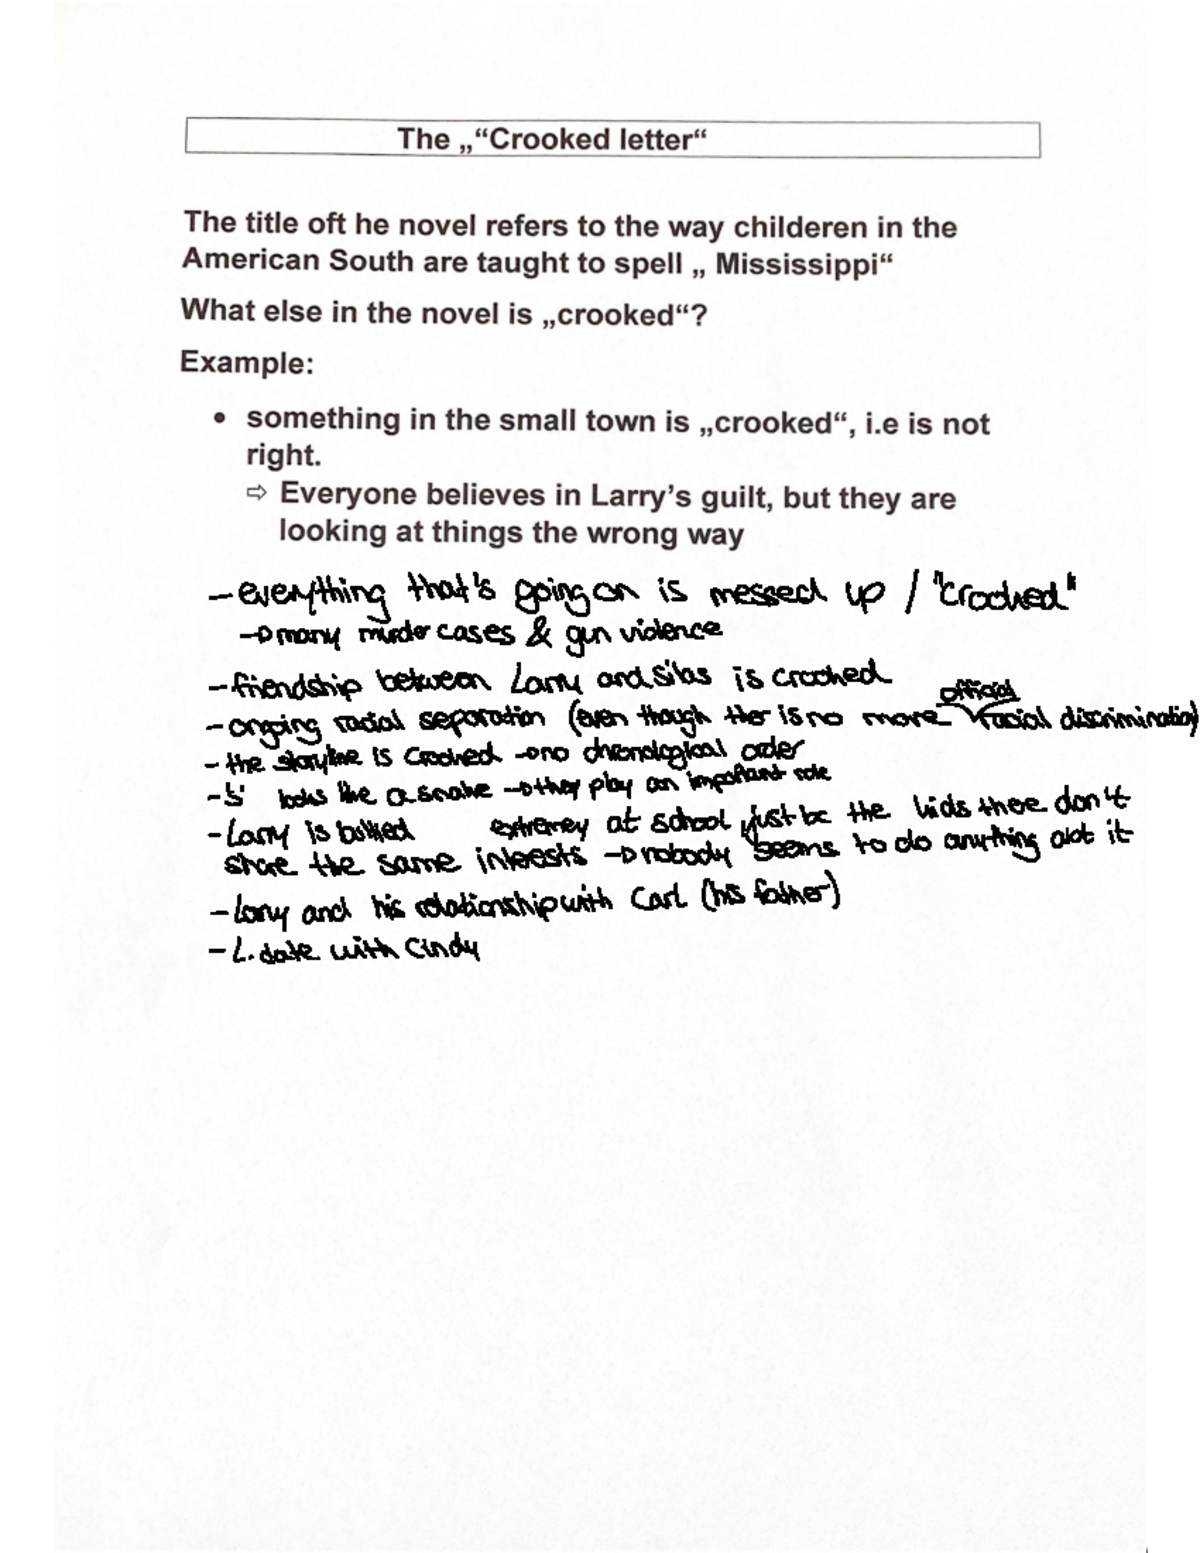 The „“Crooked letter“
The title oft he novel refers to the way childeren in the
American South are taught to spell „ Mississippi“
What else in the novel is „crooked“?
Example:
• something in the small town is „crooked“, i.e is not
right.
⇨ Everyone believes in Larry’s guilt, but they are
looking at things the wrong way
– everything that's going on is messed up / "crooked"
→ many murder cases & gun violence
– friendship between Larry and Silas is crooked
official
– ongoing racial separation (even though ther is no more racial discrimination)
– the storyline is crooked → no chronological order
– 'S' looks like a snake → they play an important role
– Larry is bullied extremey at school just bc the kids there don't
share the same interests → nobody seems to do anything abt it
– Larry and his relationship with Carl (his father)
– L. date with Cindy